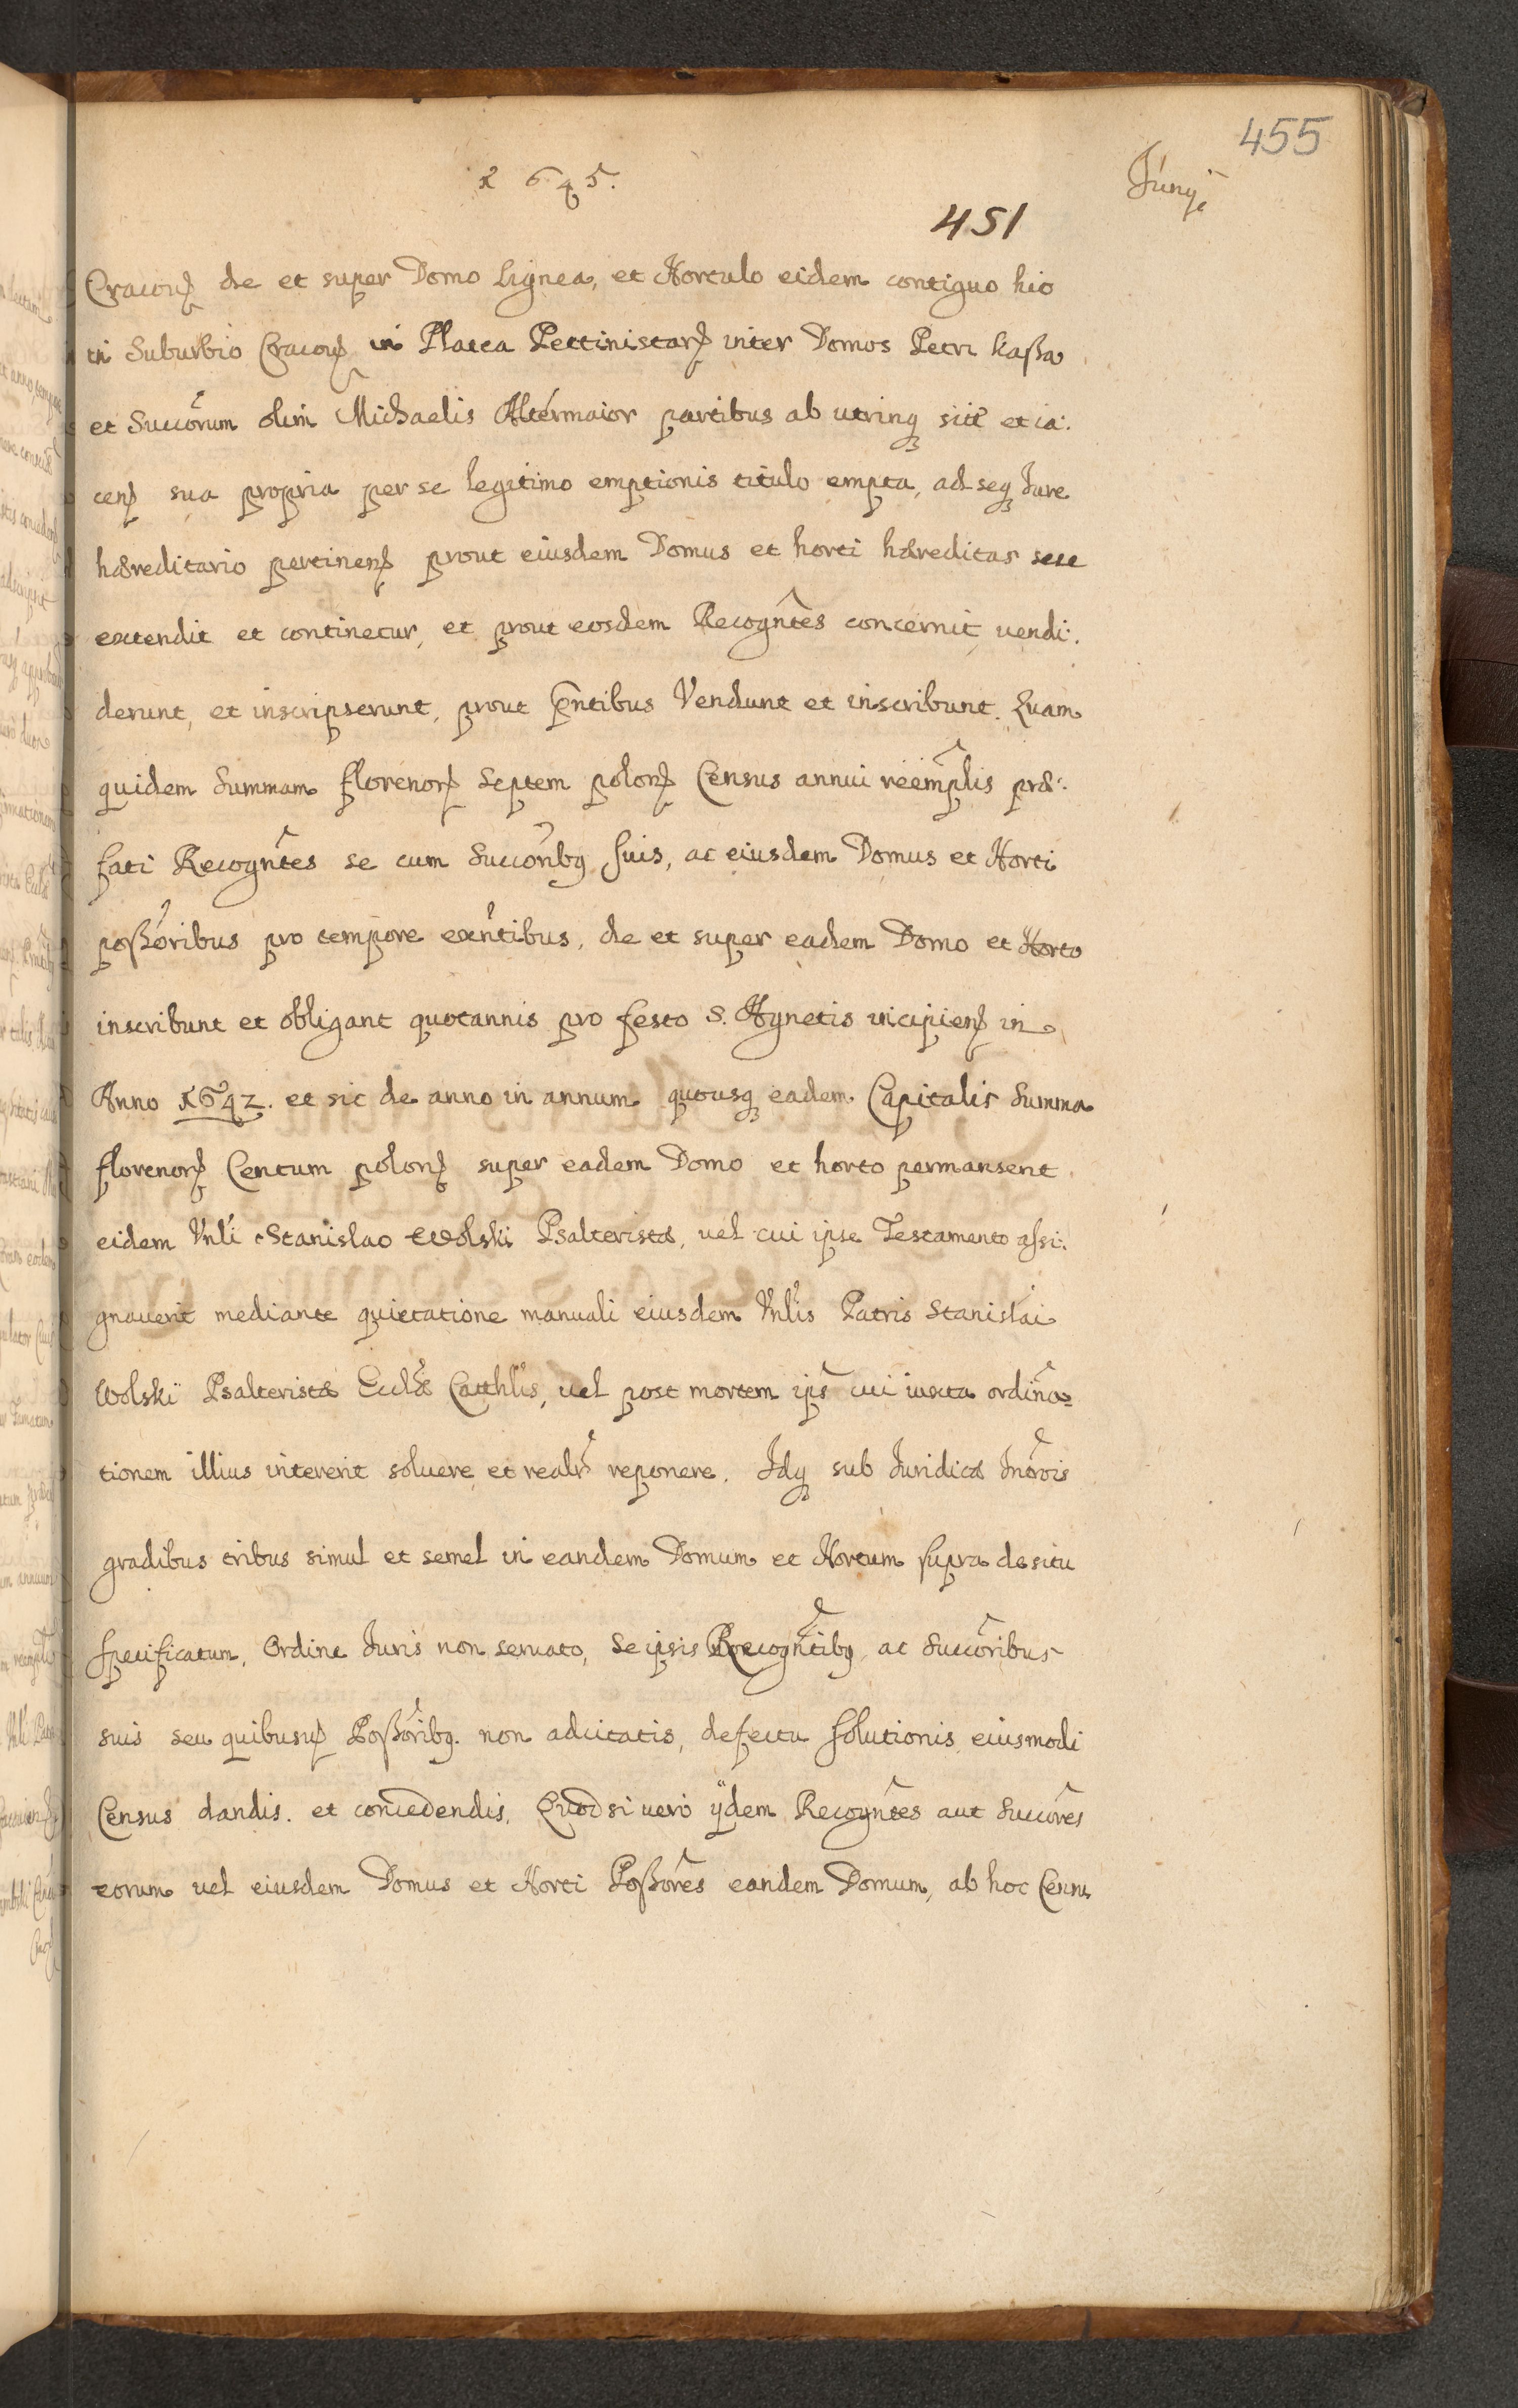 455
1645.
Junÿ
451
Cracouꝭ de et super Domo lignea, et Hortulo eidem contiguo hic
in Suburbio Cracouꝭ in Platea Pettinistarꝭ inter Domos Petri Kaßa
et Succõrum olim Michaelis Altermaior partibus ab utrinqꝫ siit̃ et ia:
cenꝭ sua propria per se legitimo emptionis titulo empta, ad seqꝫ Jure
hæreditario pertinenꝭ prout eiusdem Domus et horti hæreditas sese
extendit et continetur, et prout eosdem Recogñtes concernit, vendi:
derunt, et inscripserunt, prout p̃ntibus Vendunt et inscribunt. Quam
quidem Summam florenorꝭ Septem polonꝭ Census annui reemp̃lis præ:
fati Recogñtes se cum Succõribꝫ suis, ac eiusdem Domus et Horti
poßõribus pro tempore exñtibus, de et super eadem Domo et Horto
inscribunt et obligant quotannis pro festo S. Agnetis incipienꝭ in
Anno 1642. et sic de anno in annum quousqꝫ eadem Capitalis Summa
florenorꝭ Centum polonꝭ super eadem Domo et horto permanserit
eidem Vnli Stanislao Wolski Psalteristæ, vel cui ipse Testamento assi:
gnauerit mediante quietatione manuali eiusdem Vnlis Patris Stanislai
Wolskï Psalteristæ Ecclæ Catthlis, vel post mortem ips̃ cui iuxta ordina=
tionem illius intererit soluere, et realr̃ reponere. Idqꝫ sub Juridica Inõrois
gradibus tribus simul et semel in eandem Domum et Hortum supra de situ
specificatum, Ordine Juris non seruato, Se ipsis Recogñtibꝫ ac Succõribus
suis seu quibusuꝭ Poßõribꝫ. non adcitatis, defectu solutionis eiusmodi
Census dandis. et concedendis. Quod si uero ÿdem Recogñtes aut Succõres
eorum vel eiusdem Domus et Horti Poßõres eandem Domum, ab hoc Censu